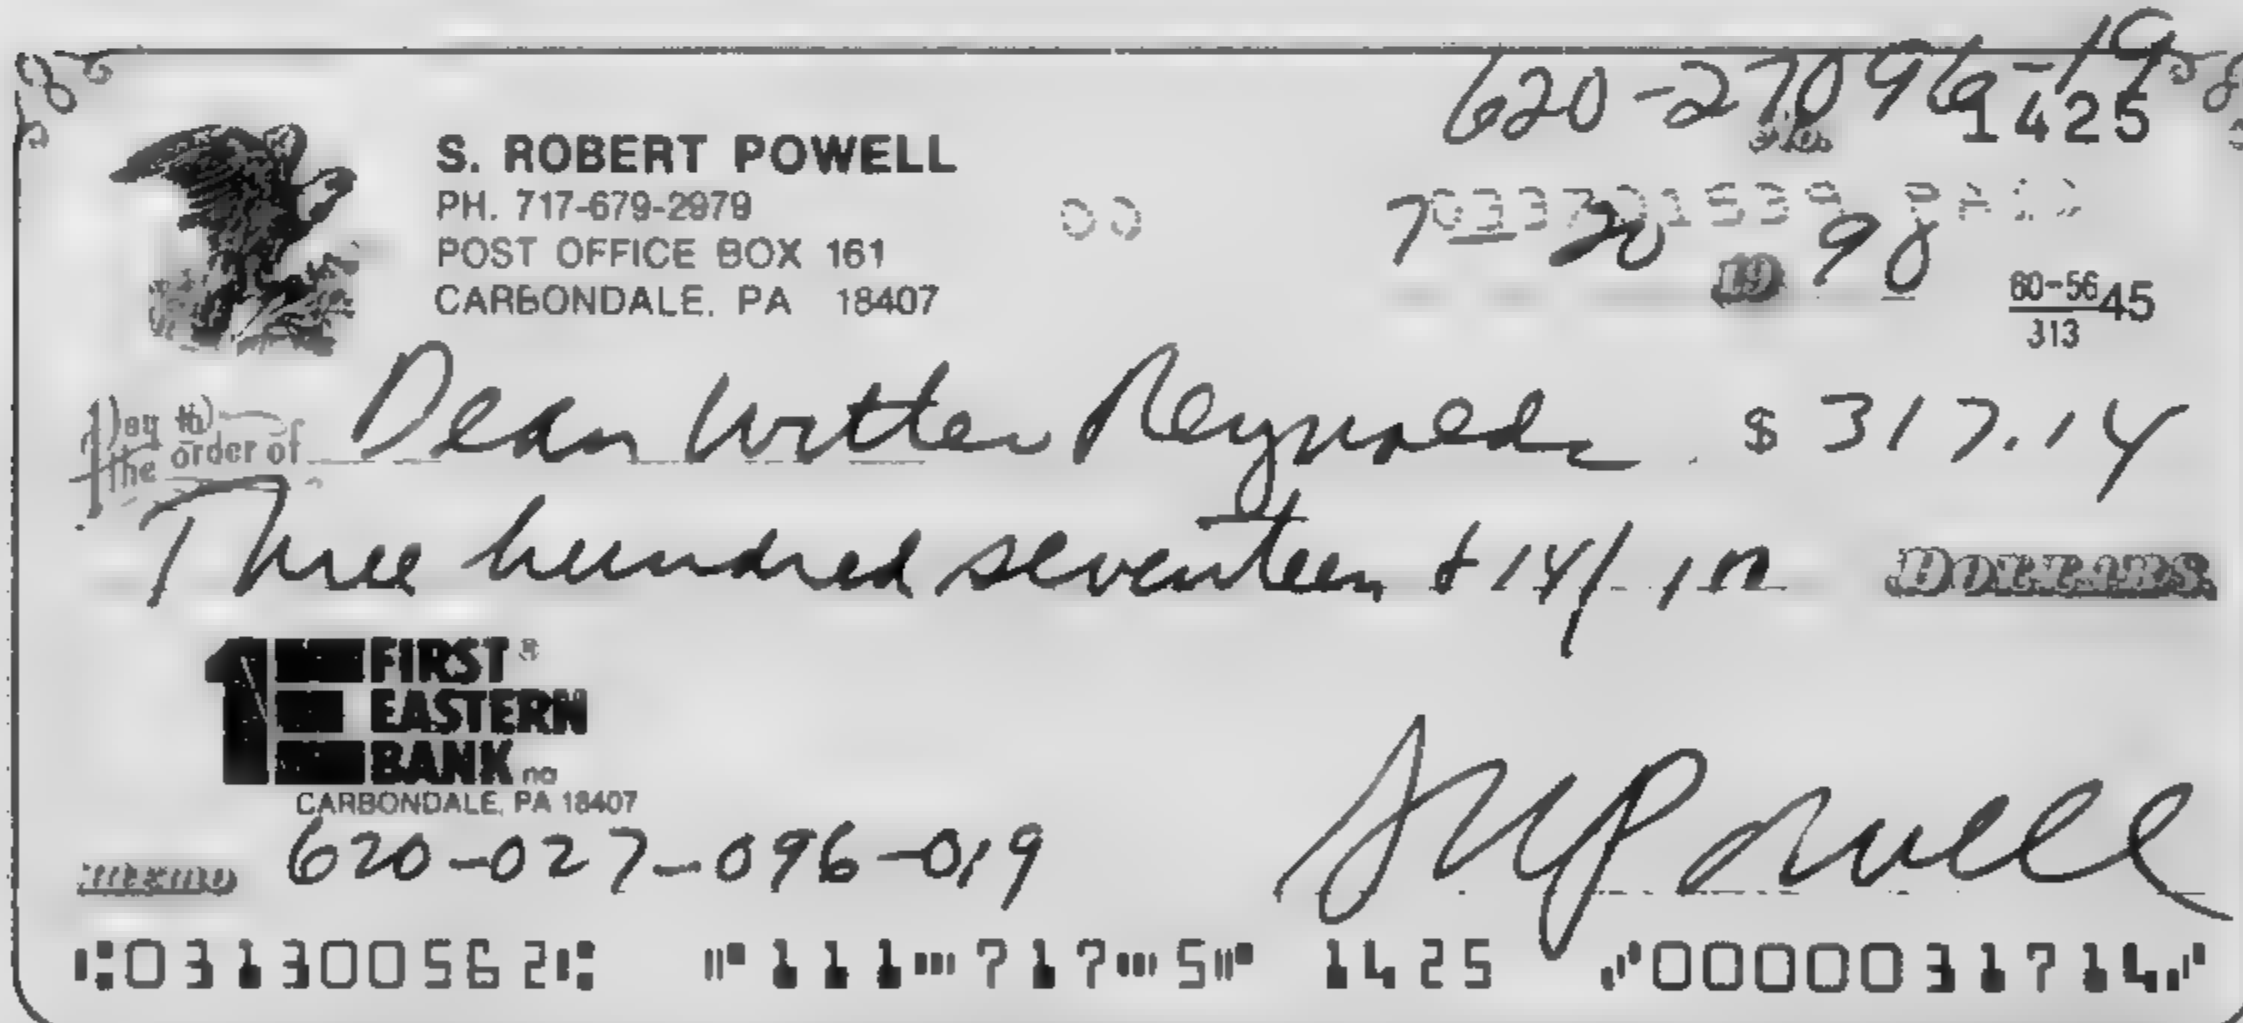 620-27096-19
S. ROBERT POWELL
No. 1425
PH. 717-679-2979
POST OFFICE BOX 161
CARBONDALE, PA 18407
7-30 19 98
60-56 45
313
Pay to the order of Dean Witter Reynolds $ 317.14
Three hundred seventeen & 14/100 DOLLARS.
1 FIRST®
EASTERN
BANK na
CARBONDALE, PA 18407
memo 620-027-096-019
SRPowell
⑆031300562⑆ ⑈111⑉717⑉5⑈ 1425 ⑇0000031714⑇